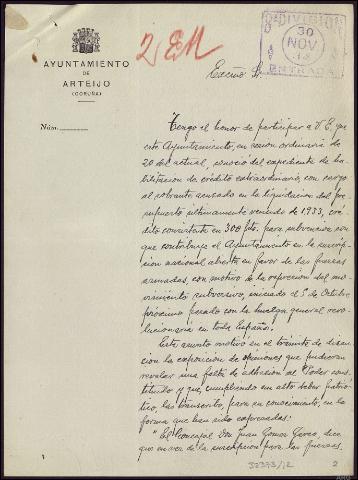 2ª EM
8ª DIVISION
30
NOV
ENTRADA
AYUNTAMIENTO
DE
ARTEIJO
(CORUÑA)
Núm.
Excmo Sr.
Tengo el honor de participar a V.E. que
este Ayuntamiento, en sesion ordinaria de
20 del actual, conoció del expediente de ha-
bilitacion de crédito extraordinario, con cargo
al sobrante acusado en la liquidacion del pre-
supuesto ultimamente vencido de 1.933, cré-
dito consistente en 300 ptas. para subvencion con
que contribuye el Ayuntamiento en la suscrip-
cion nacional abierta en favor de las fuerzas
armadas, con motivo de la represion del mo-
vimiento subversivo, iniciado el 5 de Octubre
próximo pasado con la huelga general revo-
lucionaria en toda España.
Este asunto motivó en el trámite de discu-
sion la exposicion de opiniones que pudieran
revelar una falta de adhesion al Poder cons-
tituido y que, cumpliendo un alto deber patrió-
tico, las transcribo, para su conocimiento, en la
forma que han sido expresadas:
"El Concejal Don Juan Gomez dice
que en vez de la suscripcion para las fuerzas
32373/12
2